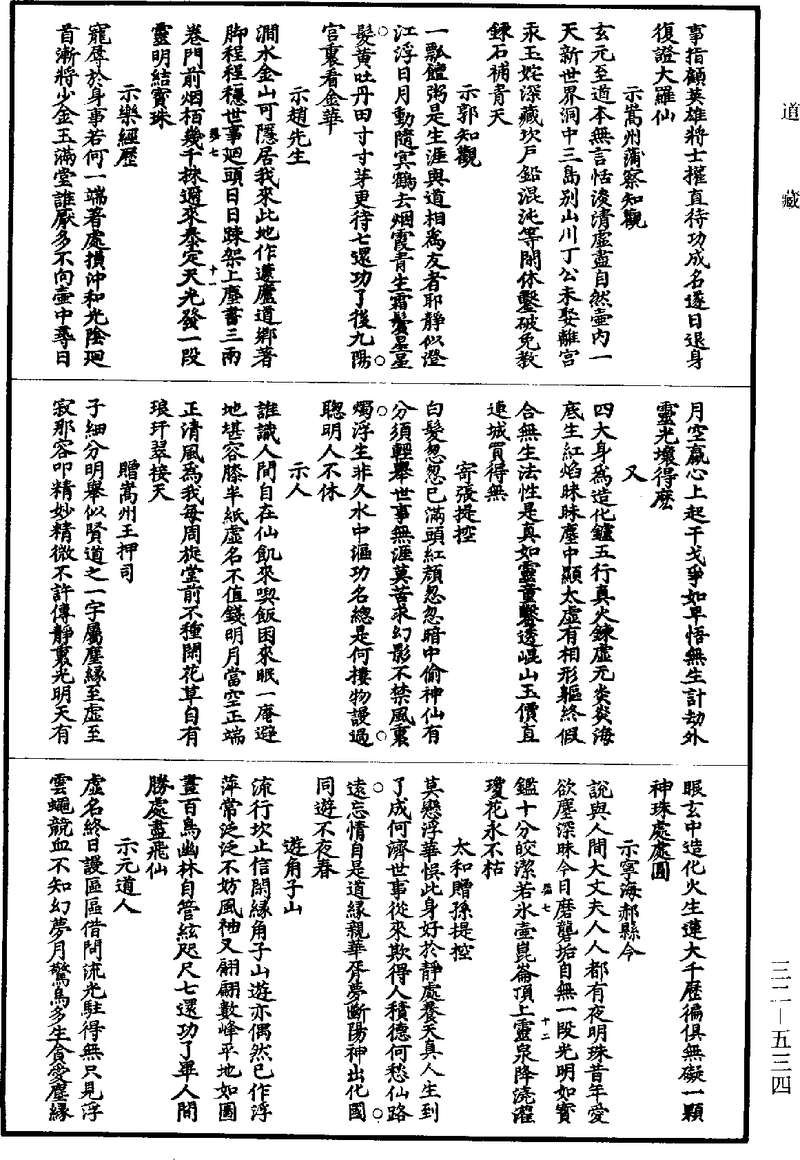 道藏
事指顧英雄將士權直待功成名遂日退身
復證大羅仙
示嵩州蒲察知觀
玄元至道本無言恬淡清虛盡自然壺內一
天新世界洞中三島別山川丁公未娶離宮
汞玉姹深藏坎戶鉛混沌等閑休鑿破免教
鍊石補青天
示郭知觀
一瓢饘粥是生涯與道相為友者耶靜似澄
江浮日月動隨寞鶴去烟霞青生霜鬢星星
髮黃吐丹田寸寸芽更待七還功了後九陽
宮裏看金華
示趙先生
澗水金山可隱居我來此地作蘧廬道鄉著
脚程程穩世事廻頭日日踈架上塵書三兩
卷門前烟栢幾千株邇來泰定天光發一段
靈明結寶珠
示樂經歷
寵辱於身事若何一端著處損沖和光陰廻
首漸將少金玉滿堂誰厭多不向壺中尋日
月空贏心上起干戈爭如早悟無生計劫外
靈光壞得麽
又
四大身為造化鑪五行真火鍊虛无炎炎海
底生紅焰昧昧塵中顯太虛有相形軀終假
合無生法性是真如靈童鑿透崐山玉價直
連城買得無
寄張提控
白髮怱怱已滿頭紅顏忽忽暗中偷神仙有
分須輕舉世事無涯莫苦求幻影不禁風裏
燭浮生非久水中漚功名總是何摟物謾過
聰明人不休
示人
誰識人間自在仙飢來喫飯困來眠一庵避
地堪容膝半紙虛名不值錢明月當空正端
正清風為我每周旋堂前不種閑花草自有
琅玕翠接天
贈嵩州王押司
子細分明舉似賢道之一字屬塵緣至虛至
寂那容叩精妙精微不許傳靜裏光明天有
眼玄中造化火生蓮大千歷徧俱無礙一顆
神珠處處圓
示寧海郝縣令
說與人間大丈夫人人都有夜明珠昔年愛
欲塵深昧今日磨礱垢自無一段光明如寶
鑑十分皎潔若氷壺崑崙頂上靈泉降澆灌
瓊花永不枯
太和贈孫提控
莫戀浮華悮此身好於靜處養天真人生到
了成何濟世事從來欺得人積德何愁仙路
遠忘情自是道緣親華胥夢斷陽神出化國
同遊不夜春
遊角子山
流行坎止信閑緣角子山遊亦偶然已作浮
萍常泛泛不妨風袖又翩翩數峰平地如圖
畫百鳥幽林自管絃咫尺七還功了畢人間
勝處盡飛仙
示元道人
虛名終日謾區區借問流光駐得無只見浮
雲蠅競血不知幻夢月驚烏多生貪愛塵緣
三二—五三四